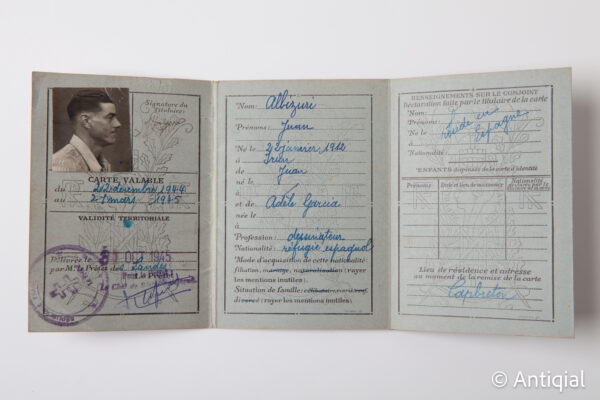 Signature du
Titulaire:
CARTE, VALABLE
du 22 décembre 1944
au 21 mars 1945
VALIDITÉ TERRITORIALE
Délivrée le 31 OCT 1945
par M. le Préfet des Landes
Le Chef de
Nom: Albizuri
Prénoms: Juan
Né le 22 janvier 1912
à Irun
de Juan
né le
à
et de Adèle Garcia
née le
à
Profession: dessinateur
Nationalité: réfugié espagnol
Mode d'acquisition de cette nationalité:
filiation, mariage, naturalisation (rayer
les mentions inutiles).
Situation de famille: célibataire,
divorcé (rayer les mentions inutiles).
RENSEIGNEMENTS SUR LE CONJOINT
Déclaration faite par le titulaire de la carte
Nom:
Prénoms: réside en
Né le Espagne
à
Nationalité:
ENFANTS dispensés de la carte d'identité
Prénoms Date et lieu de naissance Nationalité
Lieu de résidence et adresse
au moment de la remise de la carte
Capbreton
© Antiqial